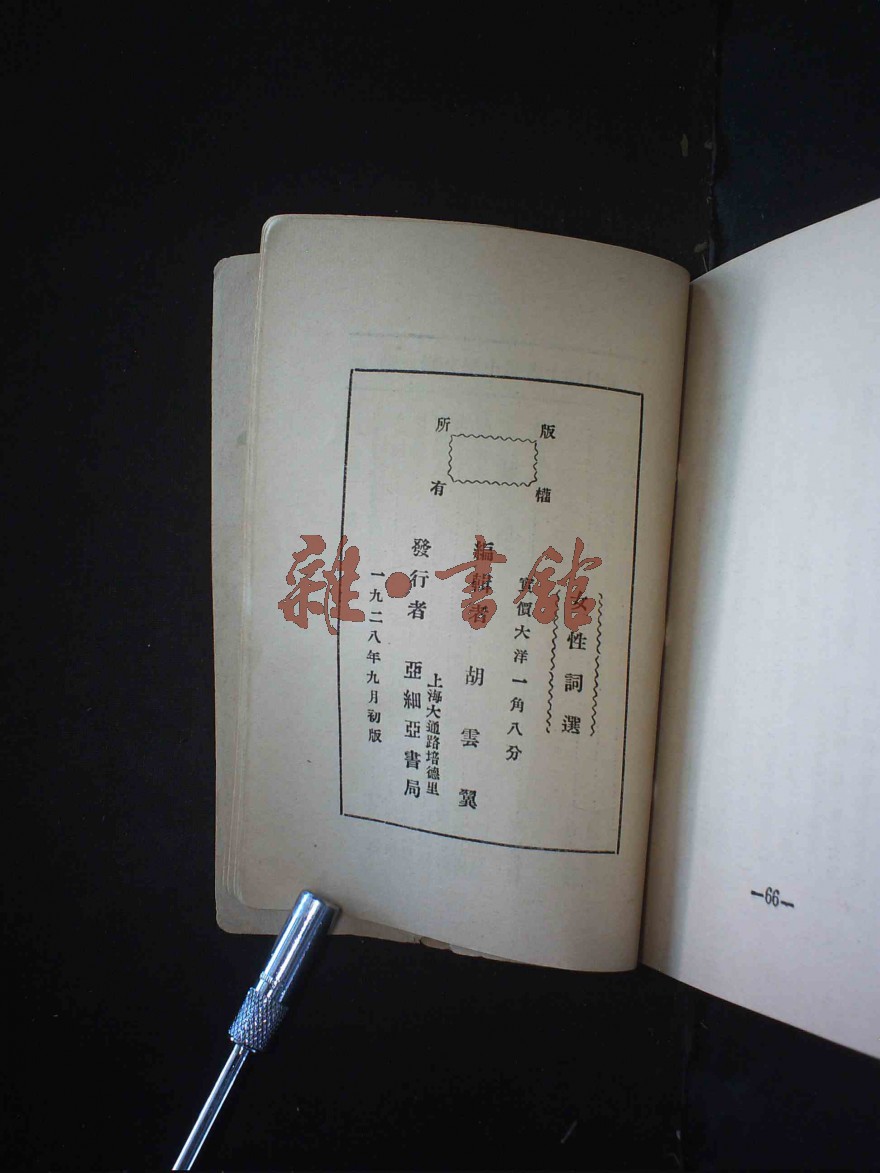 版權所有
女性詞選
實價大洋一角八分
編輯者 胡雲翼
上海大通路培德里
發行者 亞細亞書局
一九二八年九月初版
雜·書館
—66—